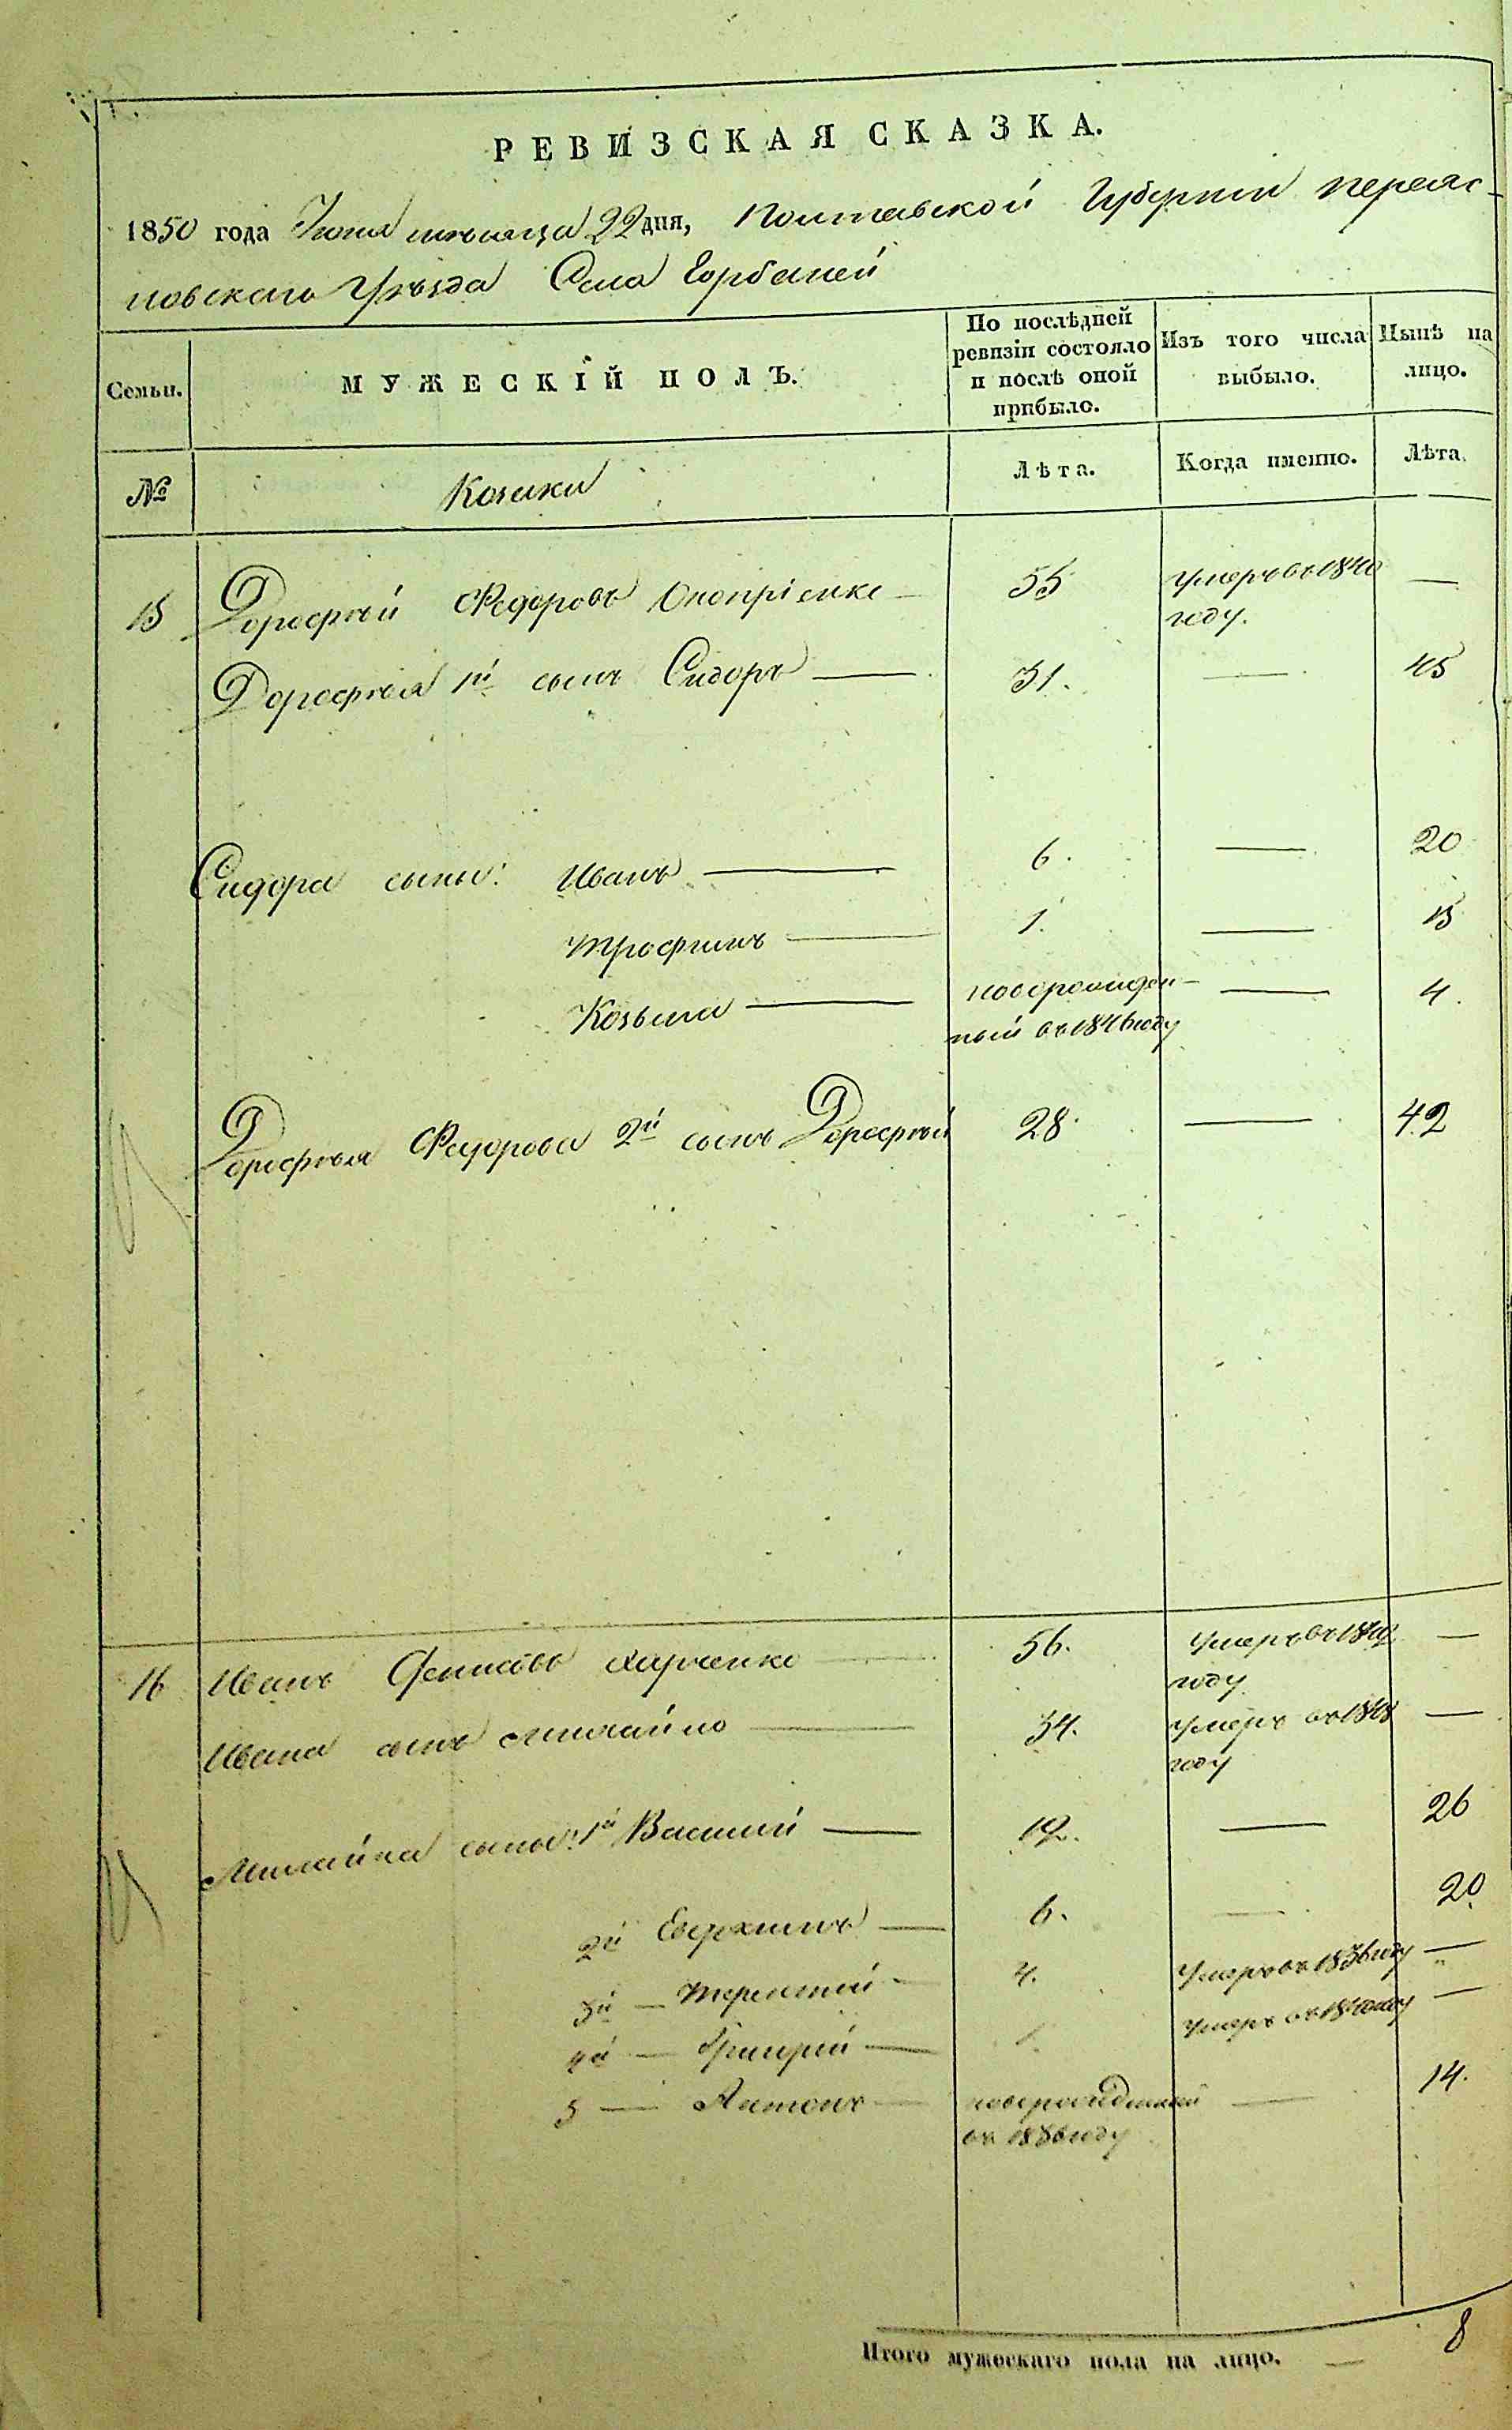 РЕВИЗСКАЯ СКАЗКА.
1850 года Июня мѣсяца 22 дня, Полтавской Губерніи Переяс-
ловскаго Уѣзда Села Горбаней
Семьи. МУЖЕСКІЙ ПОЛЪ. По послѣдней ревизіи состояло и послѣ оной прибыло. Изъ того числа выбыло. Нынѣ на лицо.
№ Козаки Лѣта. Когда именно. Лѣта.
15 Дорофѣй Федоровъ Оноприенко 55 Умеръ въ 1840 году. —
Дорофѣя 1й сынъ Сидоръ — 31. — 45
Сидора сыны: Иванъ — 6. — 20
Трофимъ — 1. — 15
Козьма — новорожден-ный въ 1846 году — 4.
Дорофѣя Федорова 2й сынъ Дорофѣй 28. — 42
16 Иванъ Денисовъ Харченко — 56. Умеръ въ году —
Ивана сынъ Михайло — 34. Умеръ въ 1848 году —
Михайла сыны: 1й Василий — 12. — 26
2й Евдокимъ — 6. — 20.
3й — Терентий — 4. Умеръ въ 1836 году —
4й — Григрий — 1. Умеръ въ 1840 году —
5 — Антонъ — новорожденный въ 1836 году — 14.
Итого мужескаго пола на лицо. — 8